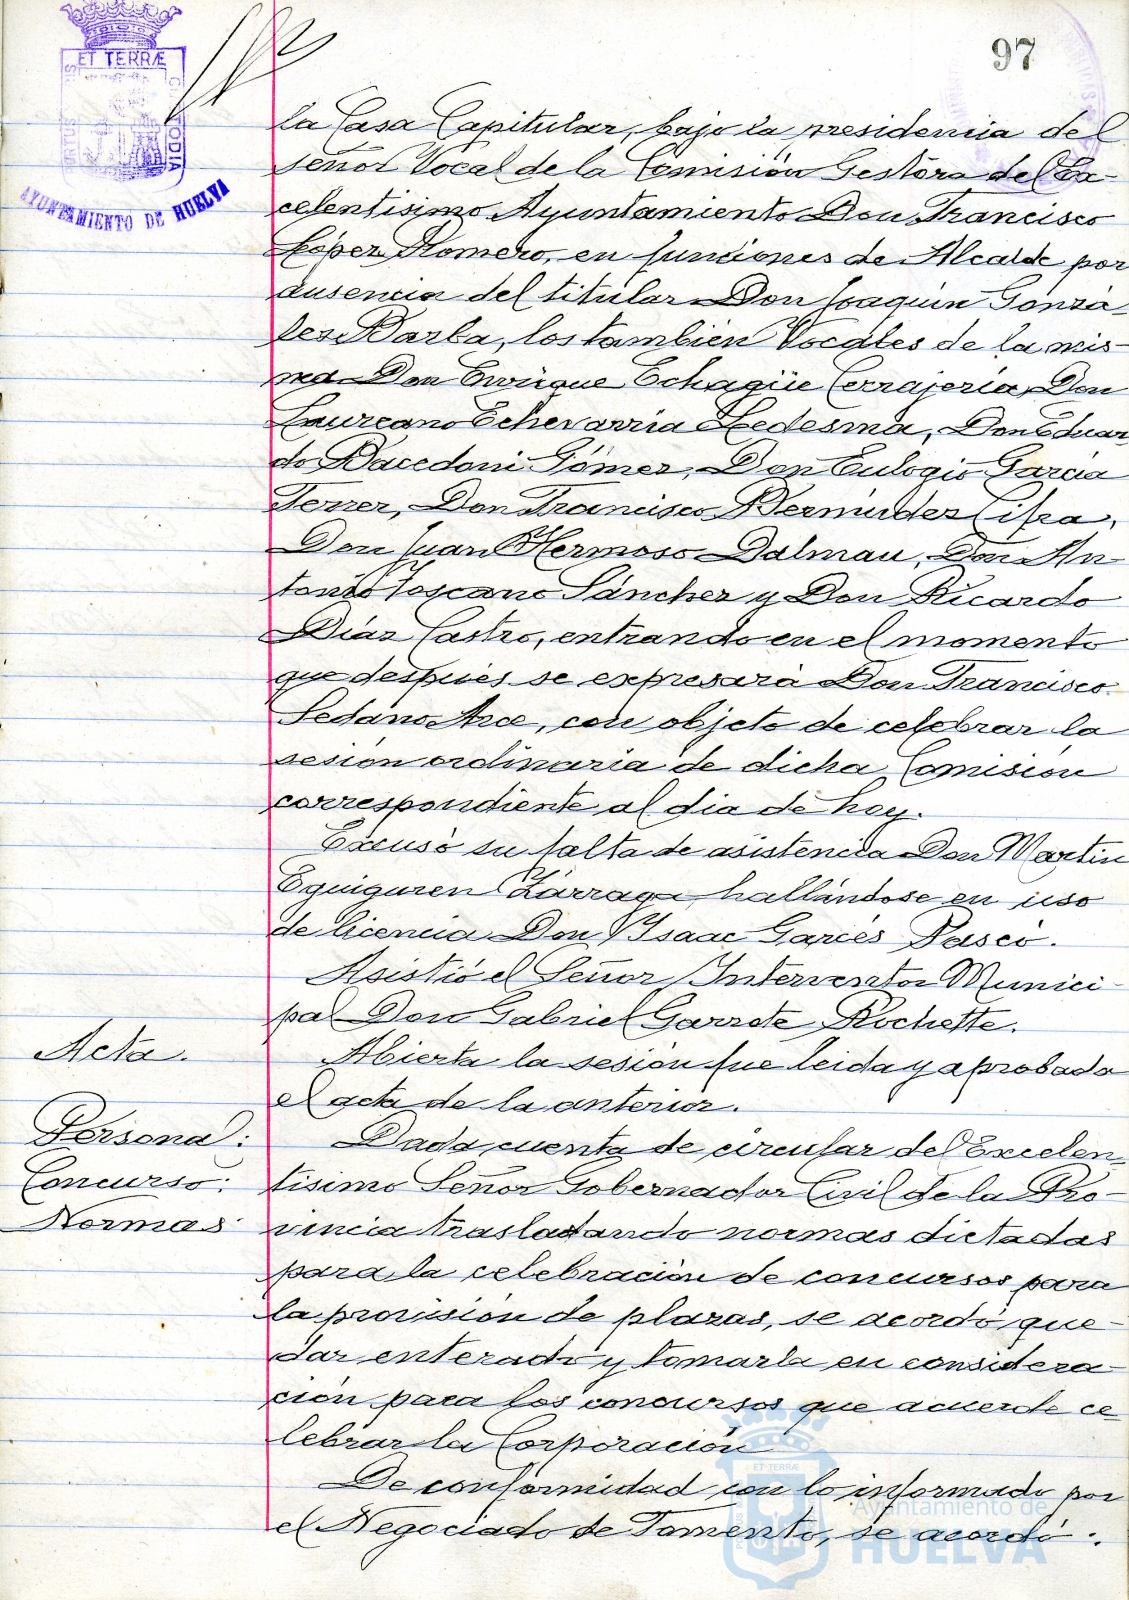 97
ET TERRÆ
PORTUS
CUSTODIA
AYUNTAMIENTO DE HUELVA
la Casa Capitular, bajo la presidencia del
señor Vocal de la Comisión Gestora del Ex-
celentisimo Ayuntamiento Don Francisco
López Romero, en funciones de Alcalde por
ausencia del titular Don Joaquin Gonzá-
lez Barba, los tambien Vocales de la mis-
ma Don Enrique Echagüe Cerrajeria, Don
Laureano Echevarria Ledesma, Don Eduar-
do Bacedoni Gómez, Don Eulogio Garcia
Ferrer, Don Francisco Bermúdez Cifra,
Don Juan Hermoso Dalmau, Don An-
tonio Toscano Sánchez y Don Ricardo
Dias Castro, entrando en el momento
que después se expresará Don Francisco
Sedano Arce, con objeto de celebrar la
sesión ordinaria de dicha Comisión
correspondiente al dia de hoy.
Excusó su falta de asistencia Don Martin
Eguiguren Zárraga hallándose en uso
de licencia Don Isaac Garcés Pascó.
Asistió el Señor Interventor Munici-
pal Don Gabriel Garrote Rochette.
Acta.
Abierta la sesión fue leida y aprobada
el acta de la anterior.
Personal:
Concurso:
Normas
Dada cuenta de circular del Excelen-
tisimo Señor Gobernador Civil de la Pro-
vincia trasladando normas dictadas
para la celebración de concursos para
la provisión de plazas, se acordó que-
dar enterado y tomarla en considera-
ción para los concursos que acuerde ce
lebrar la Corporación
De conformidad con lo informado por
el Negociado de Fomento, se acordó.
ET TERRÆ
Ayuntamiento de
HUELVA